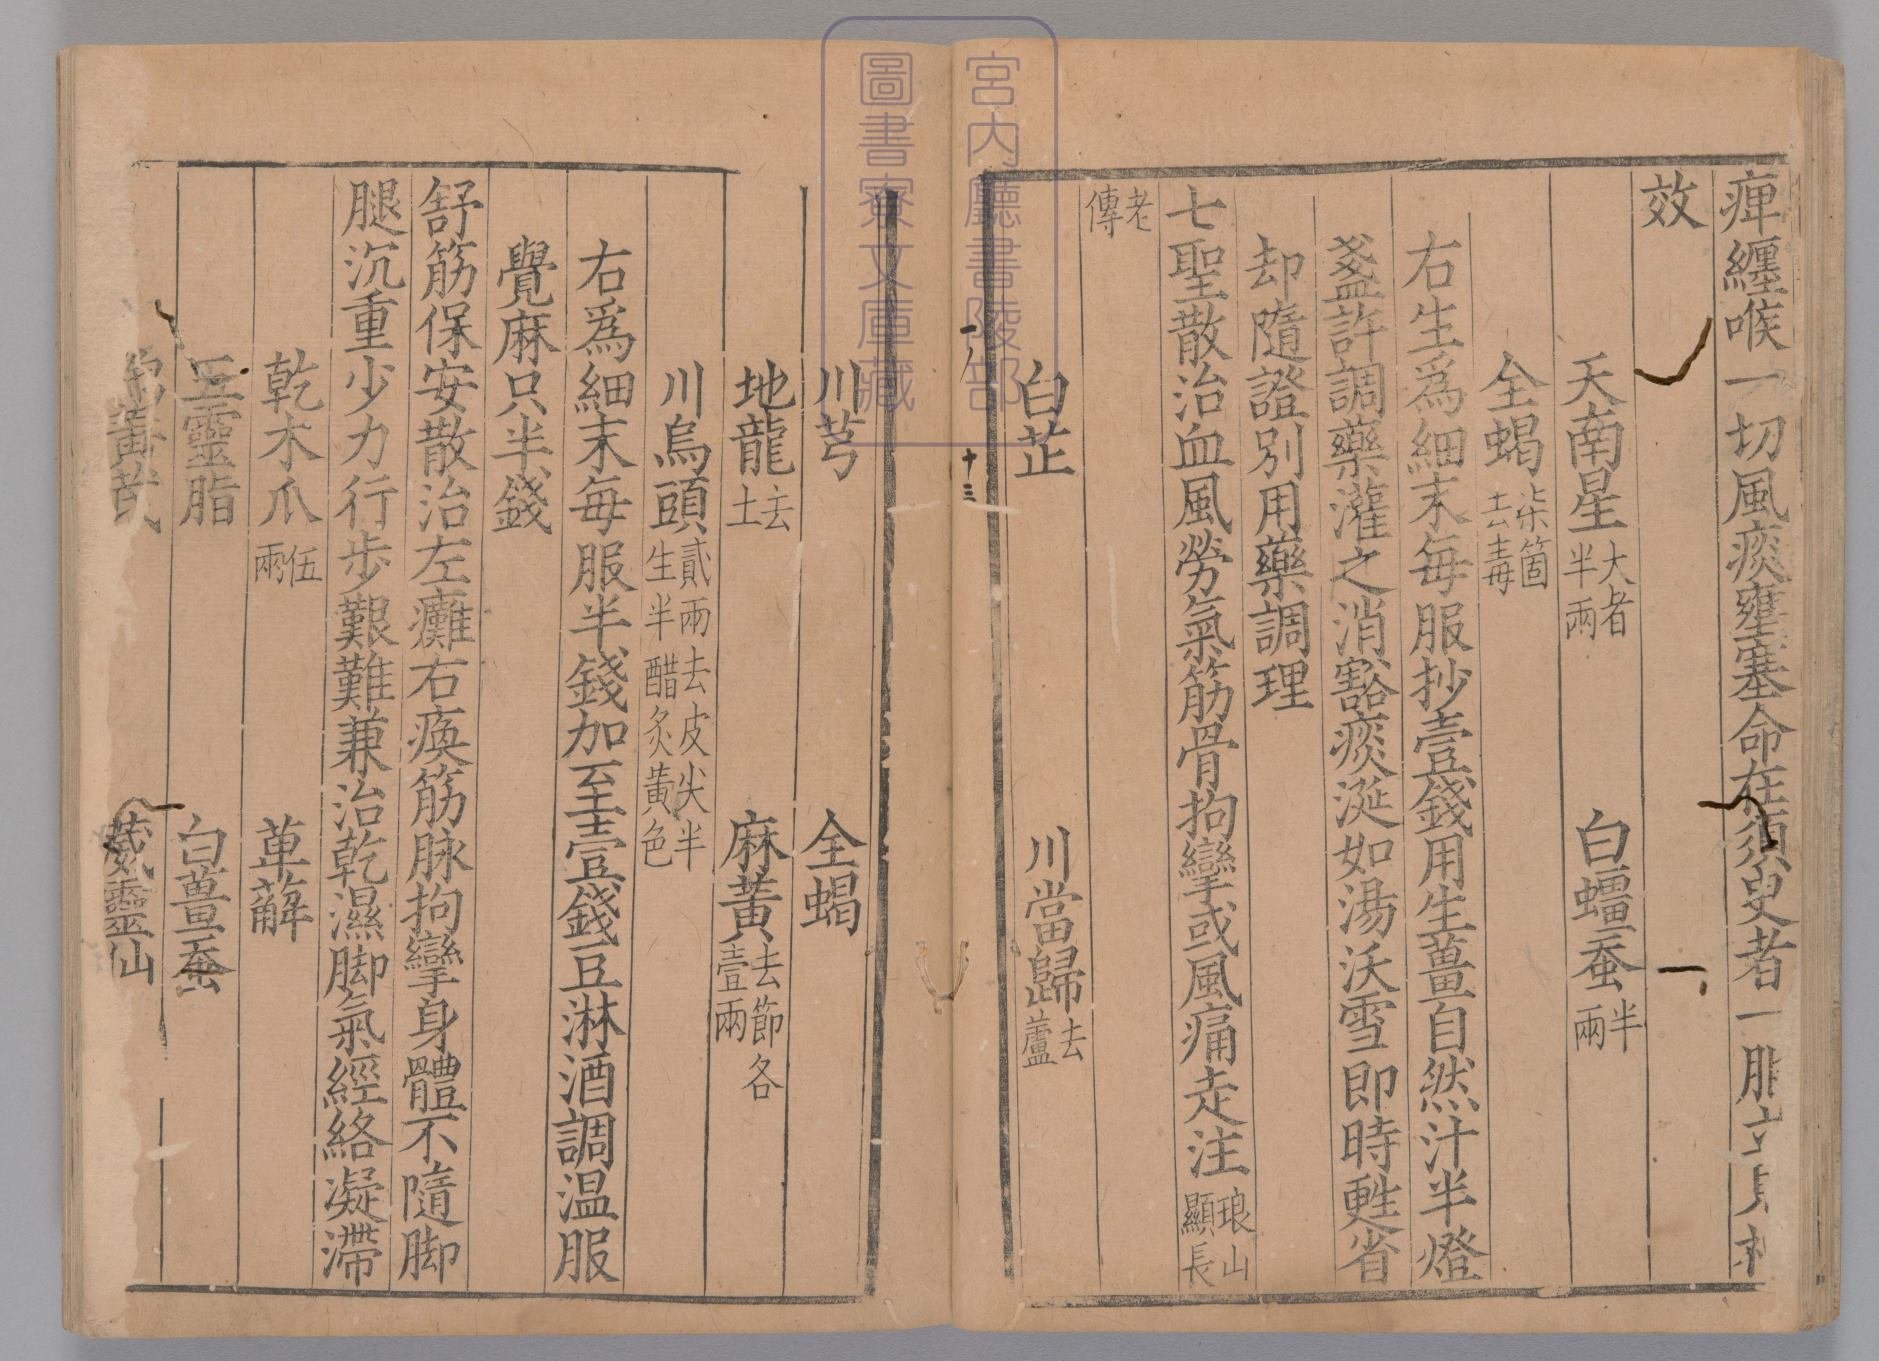 痺纏喉一切風痰壅塞命在須臾者一服立見
效
天南星大者半兩 白蠶半兩
全蝎柒箇去毒
右生爲細末每服抄壹錢用生薑自然汁半燈
盞許調藥灌之消豁痰涎如湯沃雪即時甦省
却隨證別用藥調理
七聖散治血風勞氣筋骨拘攣或風痛走注琅山顯長
老傳
白芷 川當歸去蘆
十三
川芎 全蝎
地龍去土 麻黃去節各壹兩
川烏頭貳兩去皮尖半生半醋炙黃色
右爲細末每服半錢加至壹錢豆淋酒調温服
覺麻只半錢
舒筋保安散治左癱右瘓筋脉拘攣身體不隨脚
腿沉重少力行步艱難兼治乾濕脚氣經絡凝滯
乾木瓜伍兩 萆薢
五靈脂 白薑蚕
黃芪 葳靈仙
宮内廳書陵部
圖書寮文庫藏